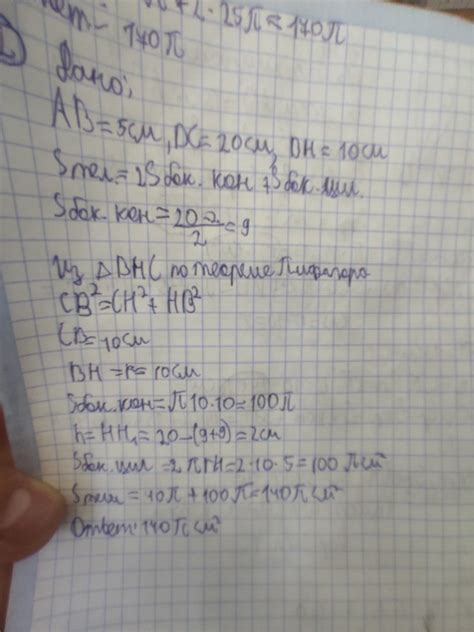 + 2·25π = 170π
170π
Дано:
AB=5см, DC=20см, DH=10см
Sтел.=2Sбок.кон+Sбок.цил.
Sбок.кон=20-2/2=9
Из △DHC по теореме Пифагора
CB²=CH²+HB²
CB=10см
BH=r=10см
Sбок.кон=π10·10=100π
h=HH₁=20-(9+9)=2см
Sбок.цил=2πrH=2·10·5=100πсм²
Sтела=40π+100π=140πсм²
Ответ:140πсм²